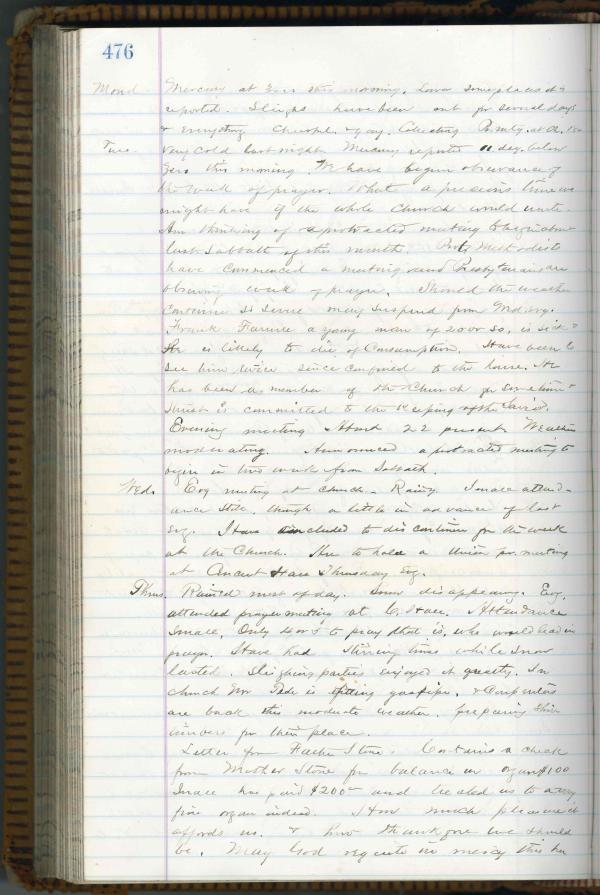 476
Mond. Mercury at Zero this morning. Lower some places it is
reported. Sleighs have been out for several days
& everything cheerful & gay. Collecting
Tues. Very cold last night Mercury reported 11 deg. below
Zero this morning. We have begun observance of
the week of prayer. What a precious time we
might have if the whole Church would unite.
Am thinking of a protracted meeting to begin about
last Sabbath of this month. Methodists
have commenced a meeting and Presbyterians are
observing week of prayer. Should the weather
continue so severe may suspend from
Frank a young man of 20 or so, is sick &
He is likely to die of Consumption. Have been to
see him twice since confined to the house. He
has been a member of the Church for sometime &
trust is committed to the keeping of the Savior.
Evening meeting 22 present. Weather
moderating. Announced a protracted meeting to
begin in two weeks from Sabbath.
Weds. Evg meeting at Church. Rainy. Small attend-
ance still, though a little in advance of last
Evg. Have concluded to discontinue for the week
at the Church. Are to hold a Union pr. meeting
at Court House Thursday Evg.
Thurs. Rained most of day. Snow disappearing. Evg.
attended prayer meeting at C. House. Attendance
small. Only 4 or 5 to pray that is, who would lead in
prayer. Have had stirring times while snow
lasted. Sleighing parties enjoyed it greatly. In
Church Mr. is fitting gas pipe. & Carpenters
are back this moderate weather. preparing their
timbers for their place.
Letter from Father Stone. Contains a check
from Mother Stone for balance on organ $100
has paid $200 and treated us to a very
fine organ indeed. How much pleasure it
affords us. & how thankful we should
be. May God requite in mercy this her